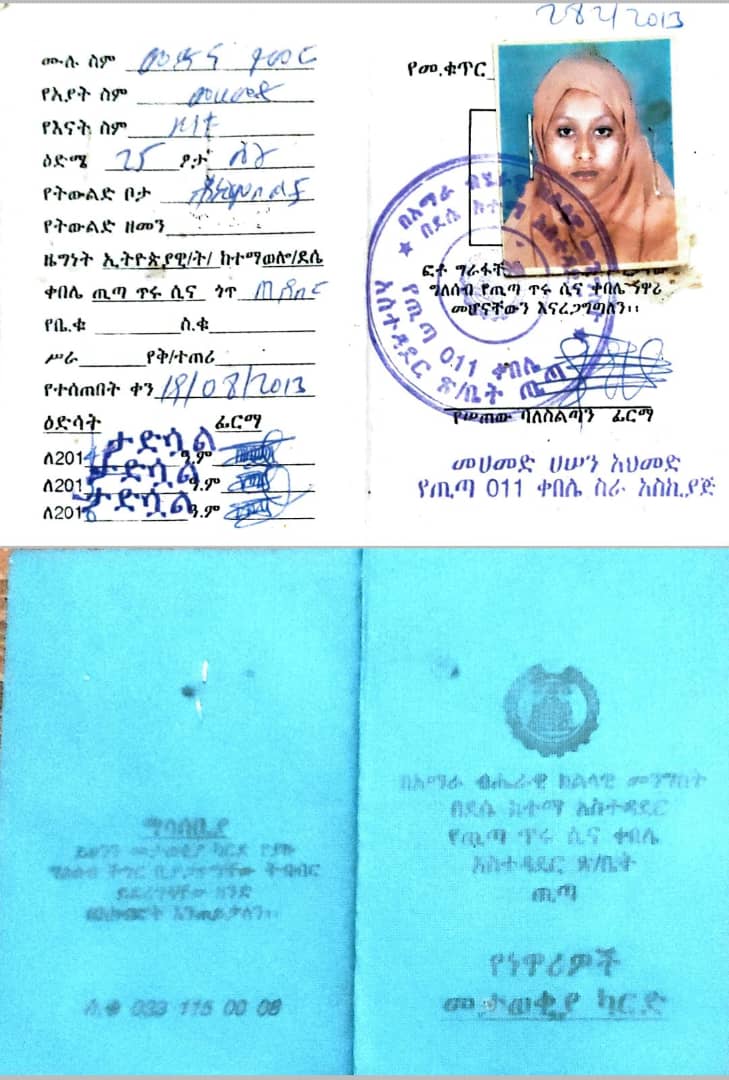 282/2013
ሙሉ ስም መዲና
የአያት ስም መሀመድ
የእናት ስም
ዕድሜ 25 ፆታ ሴት
የትውልድ ቦታ
የትውልድ ዘመን
ዜግነት ኢትዮጵያዊ/ት/ ከተማወሎ/ደሴ
ቀበሌ ጢጣ ጥሩ ሲና ጎጥ
የቤ.ቁ ስ.ቁ
ሥራ የቅ/ተጠሪ
የተሰጠበት ቀን 19/08/2013
ዕድሳት ፊርማ
ለ201 ታድሷል ዓ.ም
ለ201 ታድሷል ዓ.ም
ለ201 ታድሷል ዓ.ም
የመ.ቁጥር
ፎቶ ግራፋቸ
ግለሰብ የጢጣ ጥሩ ሲና ቀበሌ ኗዋሪ
መሆናቸውን እናረጋግጣለን፡፡
በአማራ ብሄራዊ
በደሴ ከተማ አስተዳደር
የጢጣ 011 ቀበሌ
አስተዳደር ጽ/ቤት ጢጣ
የሠጠው ባለስልጣን ፊርማ
መሀመድ ሀሠን አህመድ
የጢጣ 011 ቀበሌ ስራ አስኪያጅ
ማሳሰቢያ
ይህንን መታወቂያ ካርድ የያዙ
ግለሰብ ችግር ቢያጋጥማቸው ትብብር
ይደረግላቸው ዘንድ
በአክብሮት እንጠይቃለን፡፡
ስ.ቁ 033 115 00 08
በአማራ ብሔራዊ ክልላዊ መንግስት
በደሴ ከተማ አስተዳደር
የጢጣ ጥሩ ሲና ቀበሌ
አስተዳደር ጽ/ቤት
ጢጣ
የነዋሪዎች
መታወቂያ ካርድ